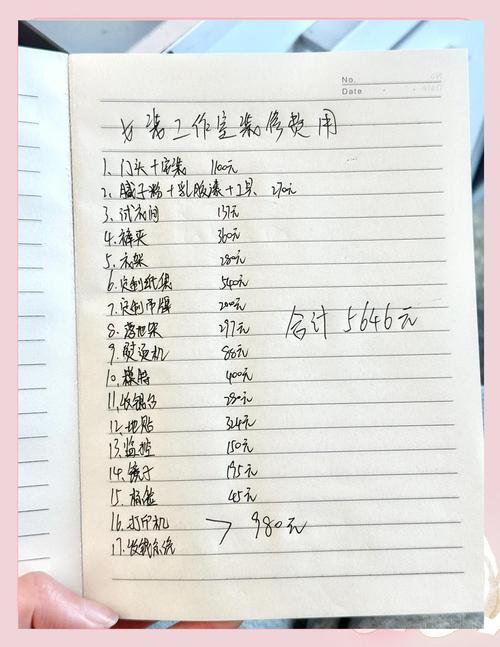 No.
Date
女装工作室装修费用
1、门头+安装 1100元
2、腻子粉+乳胶漆+工具 270元
3、试衣间 137元
4、裤夹 360元
5、衣架 280元
6、定制纸袋 540元
7、定制吊牌 200元
8、落地架 297元
9、熨烫机 88元
10、模特 400元
11、收银台 280元
12、地贴 324元
13、监控 150元
14、镜子 195元
15、标签 45元
16、打印机
17、收银系统
> 980元
合计 5646元